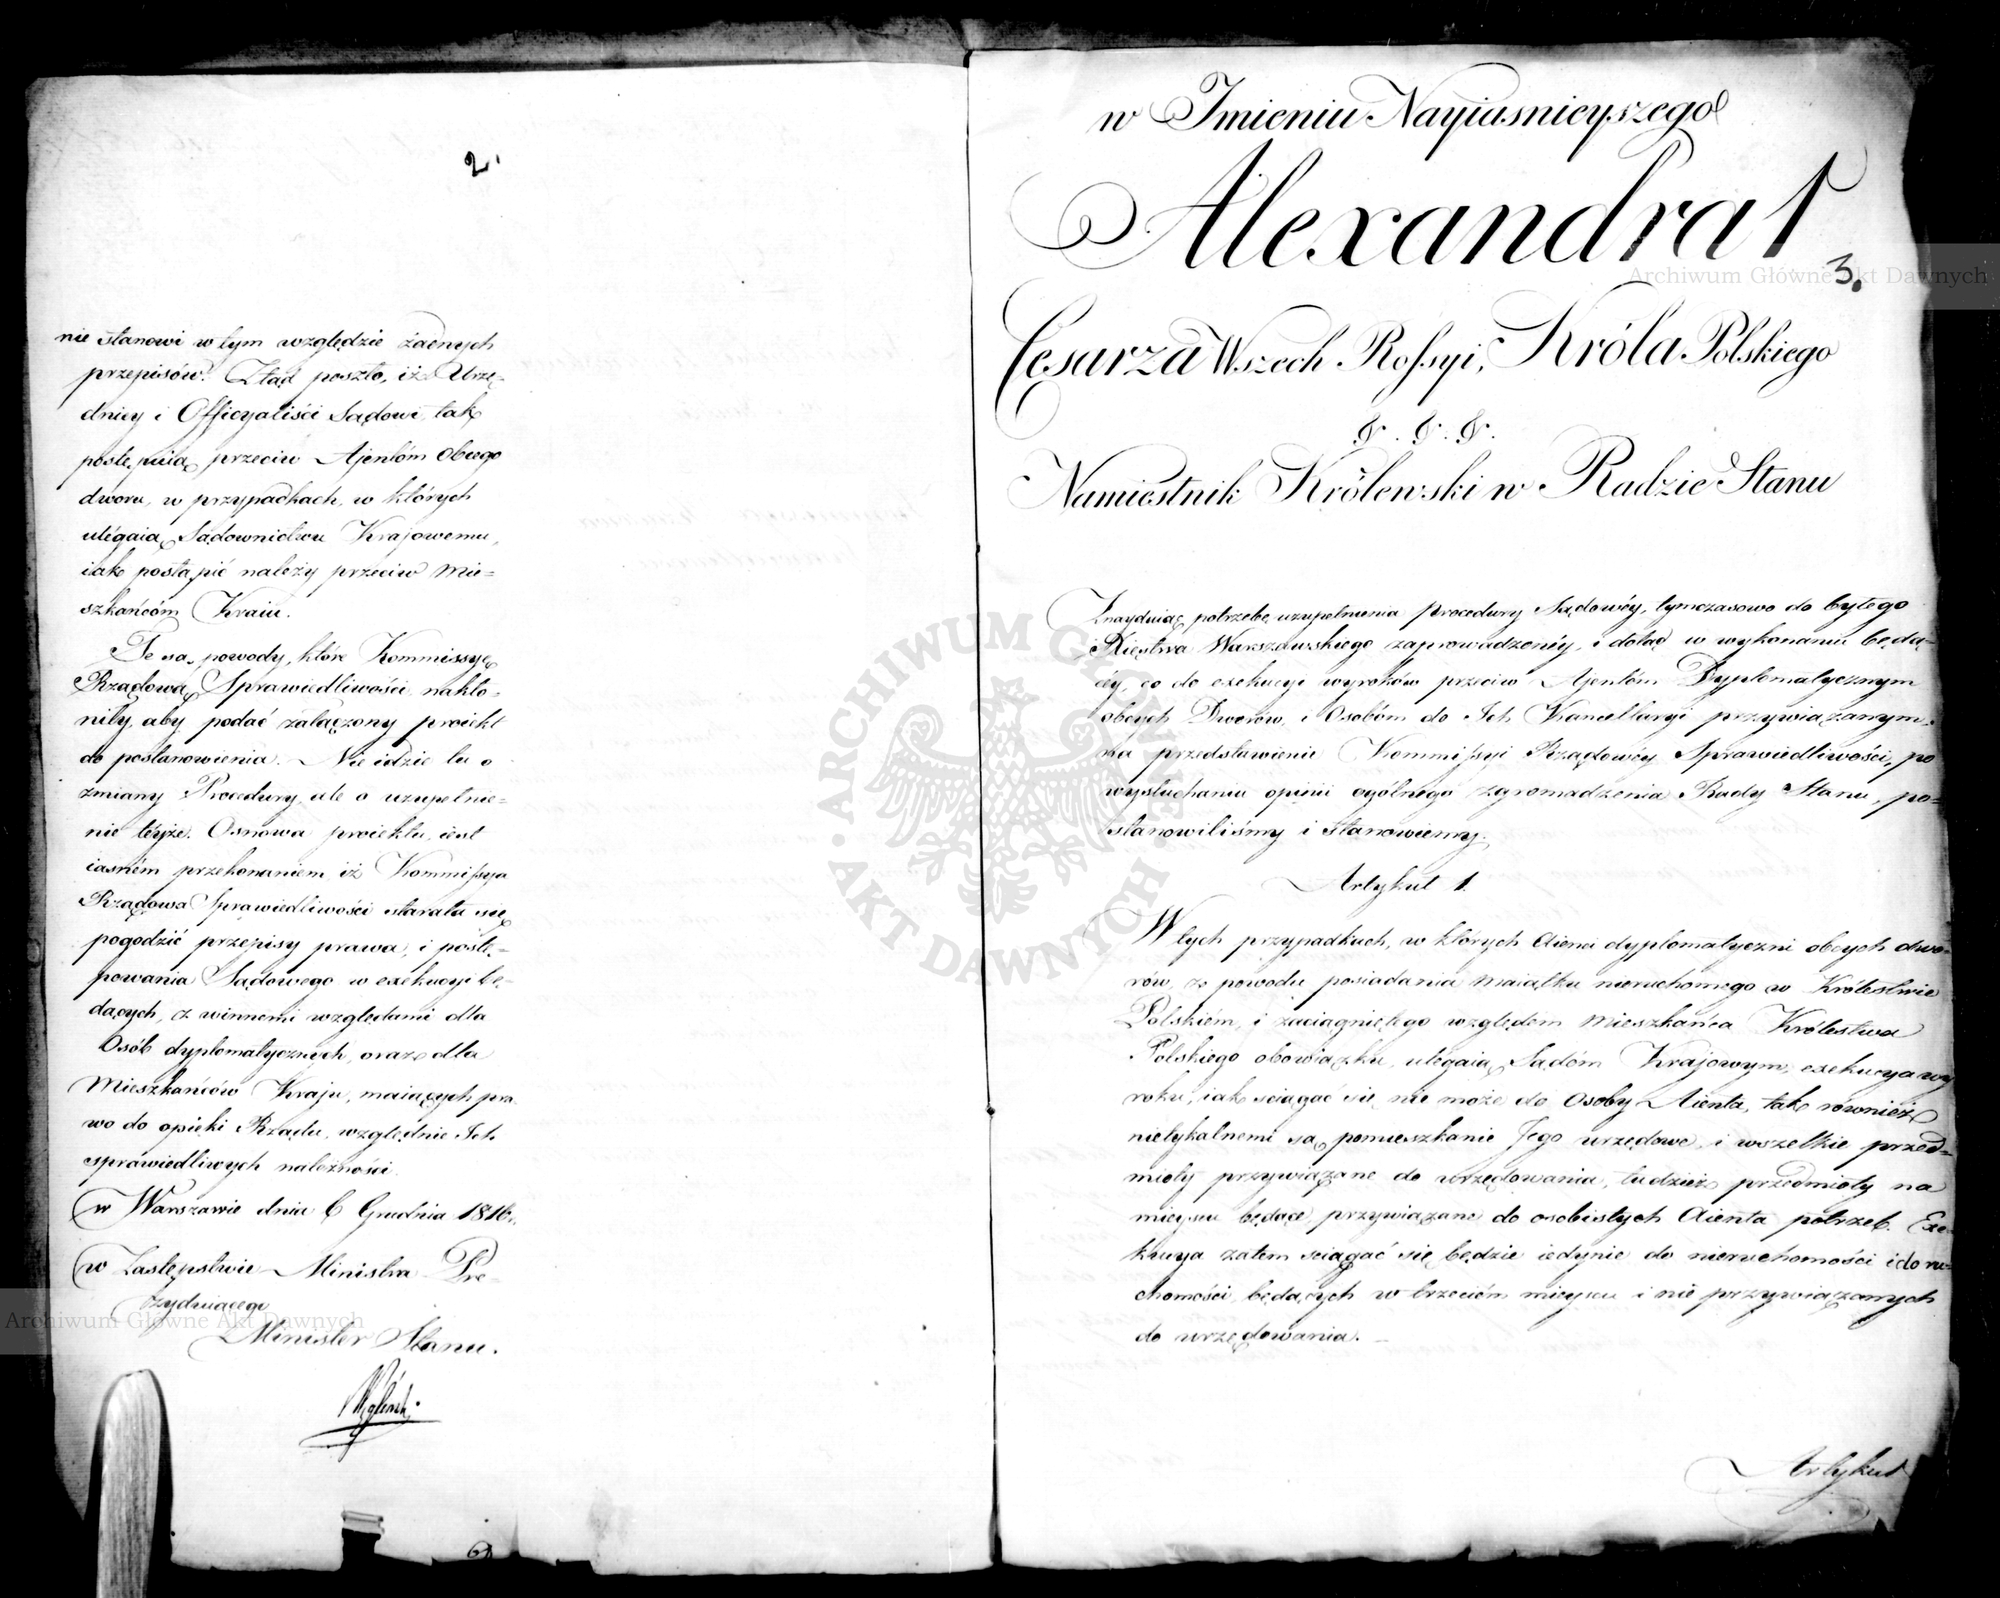 2.
nie stanowi w tym względzie żadnych
przepisów. Ztąd poszło, iż Urzę-
dnicy i Officyaliści Sądowi, tak
postępuią przeciw Ajentóm Obcego
dworu, w przypadkach, w których
ulégaią Sądownictwu Krajowemu,
iak postąpić należy przeciw Mie-
szkańcóm Kraiu.
Te są powody, które Kommissyę
Rządową Sprawiedliwości nakło-
niły, aby podać załączony proiekt
do postanowienia. Nie idzie tu o
zmiany Procedury, ale o uzupełnie-
nie téyże. Osnowa proiektu, iest
iasném przekonaniem iż Kommissya
Rządowa Sprawiedliwości starała się
pogodzić przepisy prawa, i postę-
powania Sądowego w exekucyi bę-
dących, z winnemi względami dla
Osób dyplomatycznych, oraz dla
Mieszkańców Kraju, maiących pra-
wo do opieki Rządu, względnie Ich
sprawiedliwych należności.
w Warszawie dnia 6 Grudnia 1816.
w Zastępstwie Ministra Pre-
zyduiącego
Minister Stanu.
w Imieniu Nayiasnieyszego
Alexandra I
3.
Cesarza Wszech Rossyi, Króla Polskiego
&. &. &.
Namiestnik Królewski w Radzie Stanu
Znayduiąc potrzebę uzupełnienia procedury Sądowéy, tymczasowo do byłego
Xięstwa Warszawskiego zaprowadzonéy, i dotąd w wykonaniu będą-
céy, co do exekucyi wyroków przeciw Ajentóm Dyplomatycznym
obcych Dworów, i Osobóm do Ich Kancellaryi przywiązanym,
na przedstawienie Kommissyi Rządowéy Sprawiedliwości, po
wysłuchaniu opinii ogólnego zgromadzenia Rady Stanu, po-
stanowiliśmy i stanowiemy.
Artykuł 1.
W tych przypadkach, w których Aienci dyplomatyczni obcych dwo-
rów, z powodu posiadania maiątku nieruchomego w Królestwie
Polskiém, i zaciągniętego względem Mieszkańca Królestwa
Polskiego obowiązku, ulégaią Sądóm Krajowym, exekucya wy-
roku, iak sciągać się nie może do Osoby Aienta, tak również
nietykalnemi są pomieszkanie Jego urzędowe, i wszelkie przed-
mioty przywiązane do urzędowania, tudzież przedmioty na
mieyscu będące, przywiązane do osobistych Aienta potrzeb. Exe-
kucya zatem sciągać się będzie iedynie do nieruchomości i do ru-
chomości, będących w trzeciém mieyscu i nie przywiązanych
do urzędowania.
Artykuł
Archiwum Główne Akt Dawnych
Archiwum Główne Akt Dawnych
ARCHIWUM GŁÓWNE AKT DAWNYCH